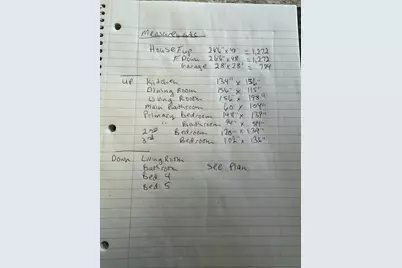 Measurements
House Fup 26'6" x 48' = 1,272
F Down 26'6" x 48' = 1,272
Garage 28' x 28' = 784
UP Kitchen 134" x 156"
Dining Room 156" x 115"
Living Room 156" x 198"
Main Bathroom 60" x 109"
Primary Bedroom 148" x 139"
" Bathroom
2nd Bedroom 120" x 139"
3rd Bedroom 106" x 135"
Down Living Room
Bathroom See Plan
Bed 4
Bed 5